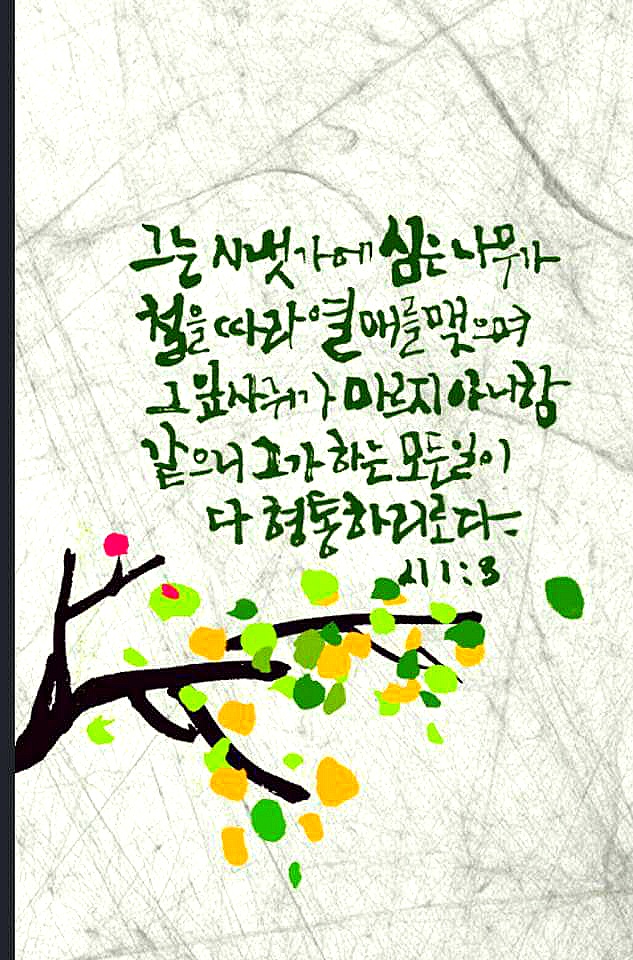 그는 시냇가에 심은 나무가
철을 따라 열매를 맺으며
그 잎사귀가 마르지 아니함
같으니 그가 하는 모든 일이
다 형통하리로다
시 1:3